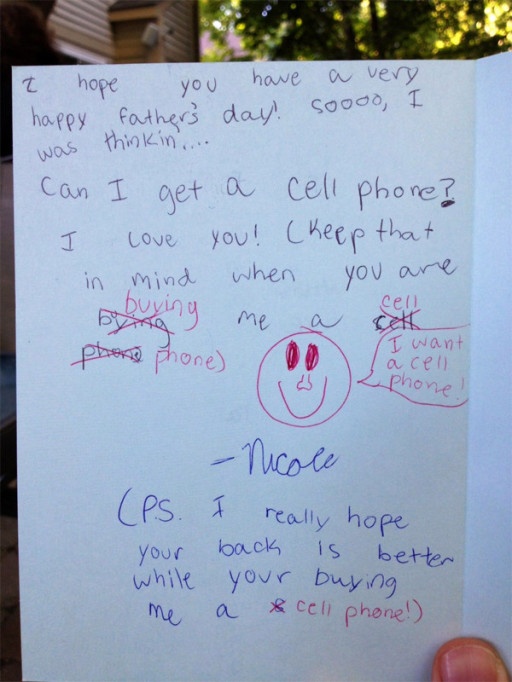 I hope you have a very
happy father's day! soooo, I
was thinkin....
Can I get a cell phone?
I love you! (Keep that
in mind when you are
buying cell
bying me a cell
phone phone)
I want
a cell
phone!
- Nicole
(PS. I really hope
your back is better
while your buying
me a cell phone!)